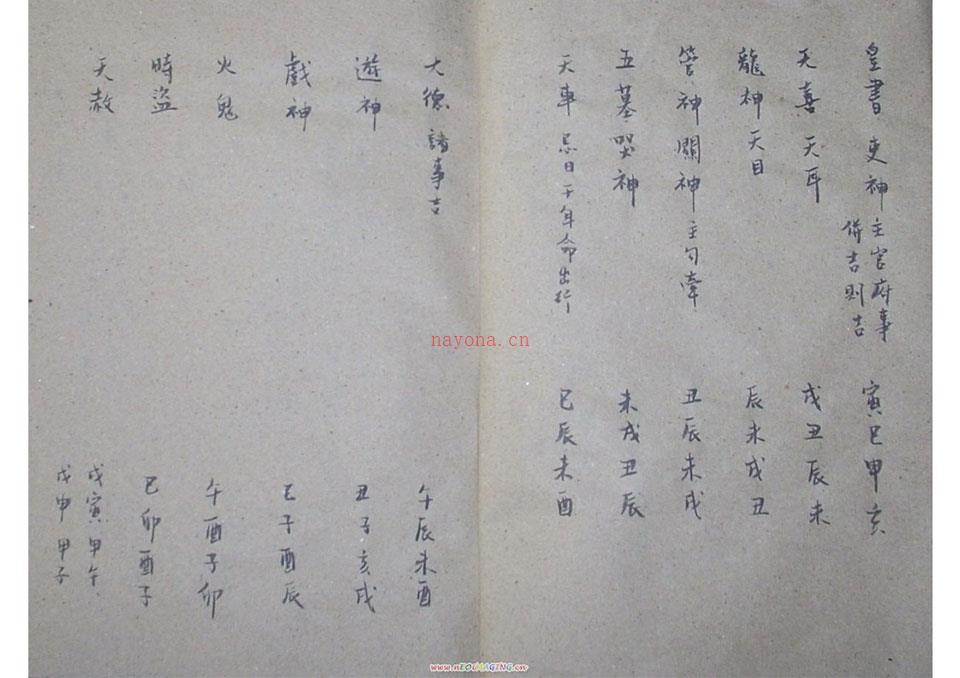 皇書 吏神 主官府事
併吉則吉
寅巳申亥
天喜 天耳 戌丑辰未
龍神 天目 辰未戌丑
管神 關神 主勾牽 丑辰未戌
五墓 哭神 未戌丑辰
天車 忌日干年命出行 巳辰未酉
大德 諸事吉 午辰未酉
遊神 丑子亥戌
戲神 巳子酉辰
火鬼 午酉子卯
時盜 巳卯酉子
天赦 戊寅 甲午
戊申 甲子
nayona.cn
www.nEOIMAGING.cn